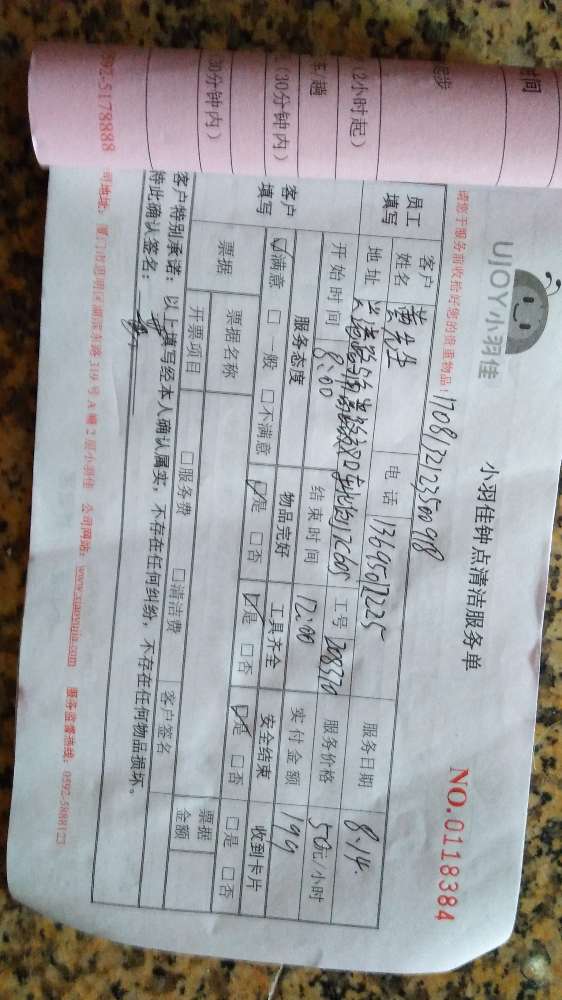 时间
起步
(2小时起)
车/趟
(30分钟内)
30分钟内)
592-5178888
UJOY小羽佳
小羽佳钟点清洁服务单
NO.0118384
请您于服务前收拾好您的贵重物品!
170812123500918
员工填写
客户姓名
黄先生
电话
13695012235
服务日期
8.14.
地址
工号
208370
服务价格
50元/小时
开始时间
8:00
结束时间
12:00
实付金额
199
客户填写
服务态度
物品完好
工具齐全
安全结束
收到卡片
☑满意 □一般 □不满意
☑是 □否
☑是 □否
☑是 □否
□是 □否
票据
票据名称
票据金额
开票项目
□服务费 □清洁费
客户签名
客户特别承诺:以上填写经本人确认属实,不存在任何纠纷,不存在任何物品损坏。
特此确认签名:
司地址:厦门市思明区湖滨东路319号A幢2层小羽佳 公司网站:www.xiaoyujia.com 服务监督热线:0592-5888123